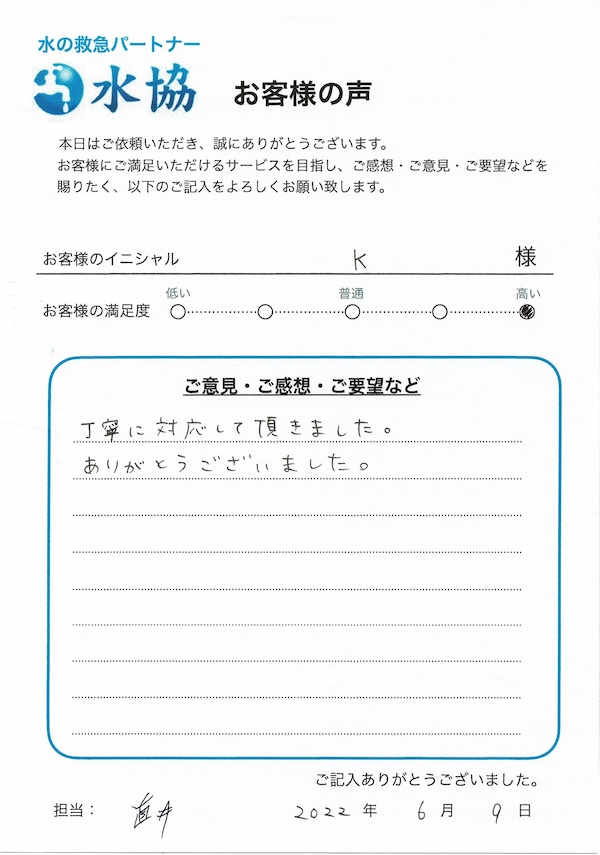 水の救急パートナー
水協
お客様の声
本日はご依頼いただき、誠にありがとうございます。
お客様にご満足いただけるサービスを目指し、ご感想・ご意見・ご要望などを
賜りたく、以下のご記入をよろしくお願い致します。
お客様のイニシャル K 様
低い 普通 高い
お客様の満足度
ご意見・ご感想・ご要望など
丁寧に対応して頂きました。
ありがとうございました。
ご記入ありがとうございました。
担当： 直井 2022 年 6 月 9 日